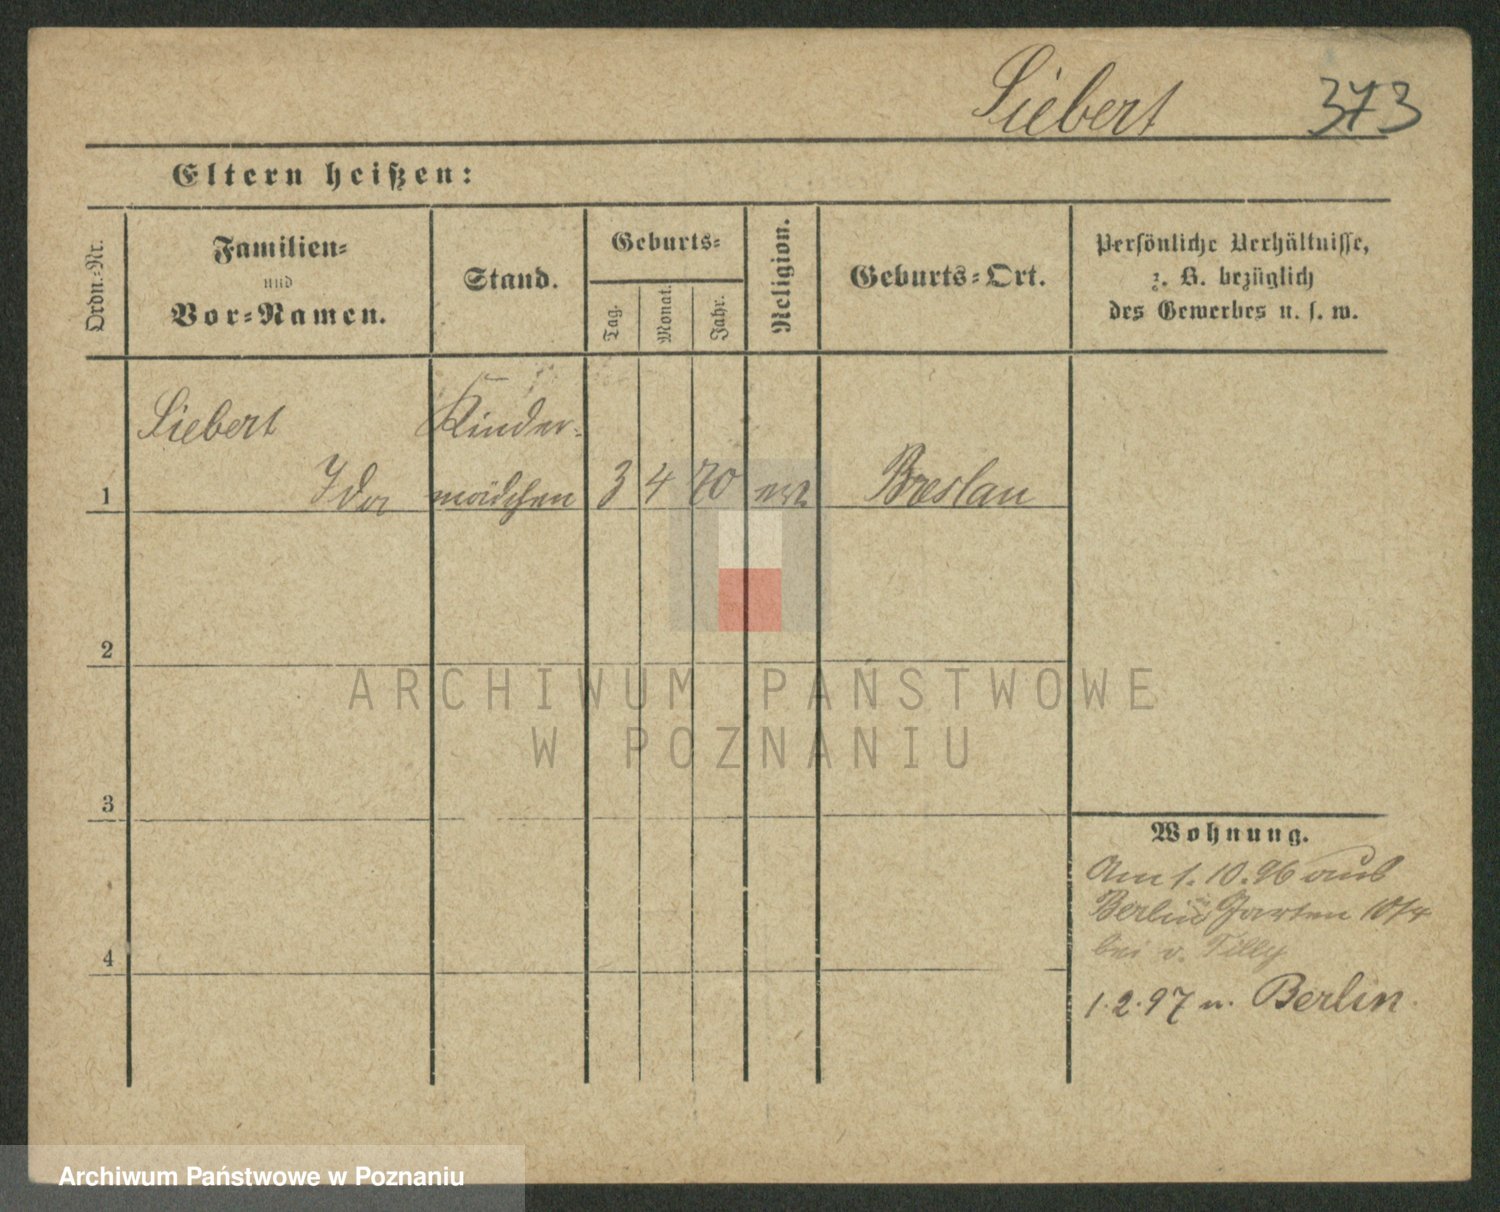 Siebert 373
Eltern heißen:
Ordn.-Nr.
Familien-
und
Vor-Namen.
Stand.
Geburts-
Tag.
Monat.
Jahr.
Religion.
Geburts-Ort.
Persönliche Verhältnisse,
z. B. bezüglich
des Gewerbes u. s. w.
Siebert Kinder-
1 Ida mädchen 3 4 70 Breslau
2
3
4
Wohnung.
Am 1.10.96 aus
Berlin Garten 10/4
bei v. Tilly
1.2.97 n. Berlin.
ARCHIWUM PAŃSTWOWE
W POZNANIU
Archiwum Państwowe w Poznaniu